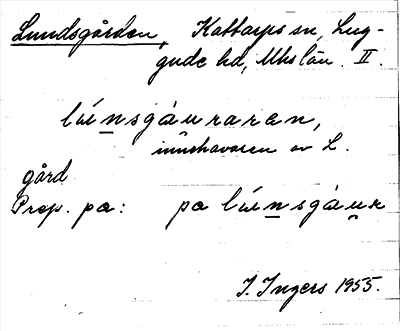 Lundsgården, Kattarps sn, Lug-
gude hd, Mhs län. II.
lúnsgáuraren,
innehavaren av L.
gård
Prep. pa: pa lúnsgáuk
I. Ingers 1955.